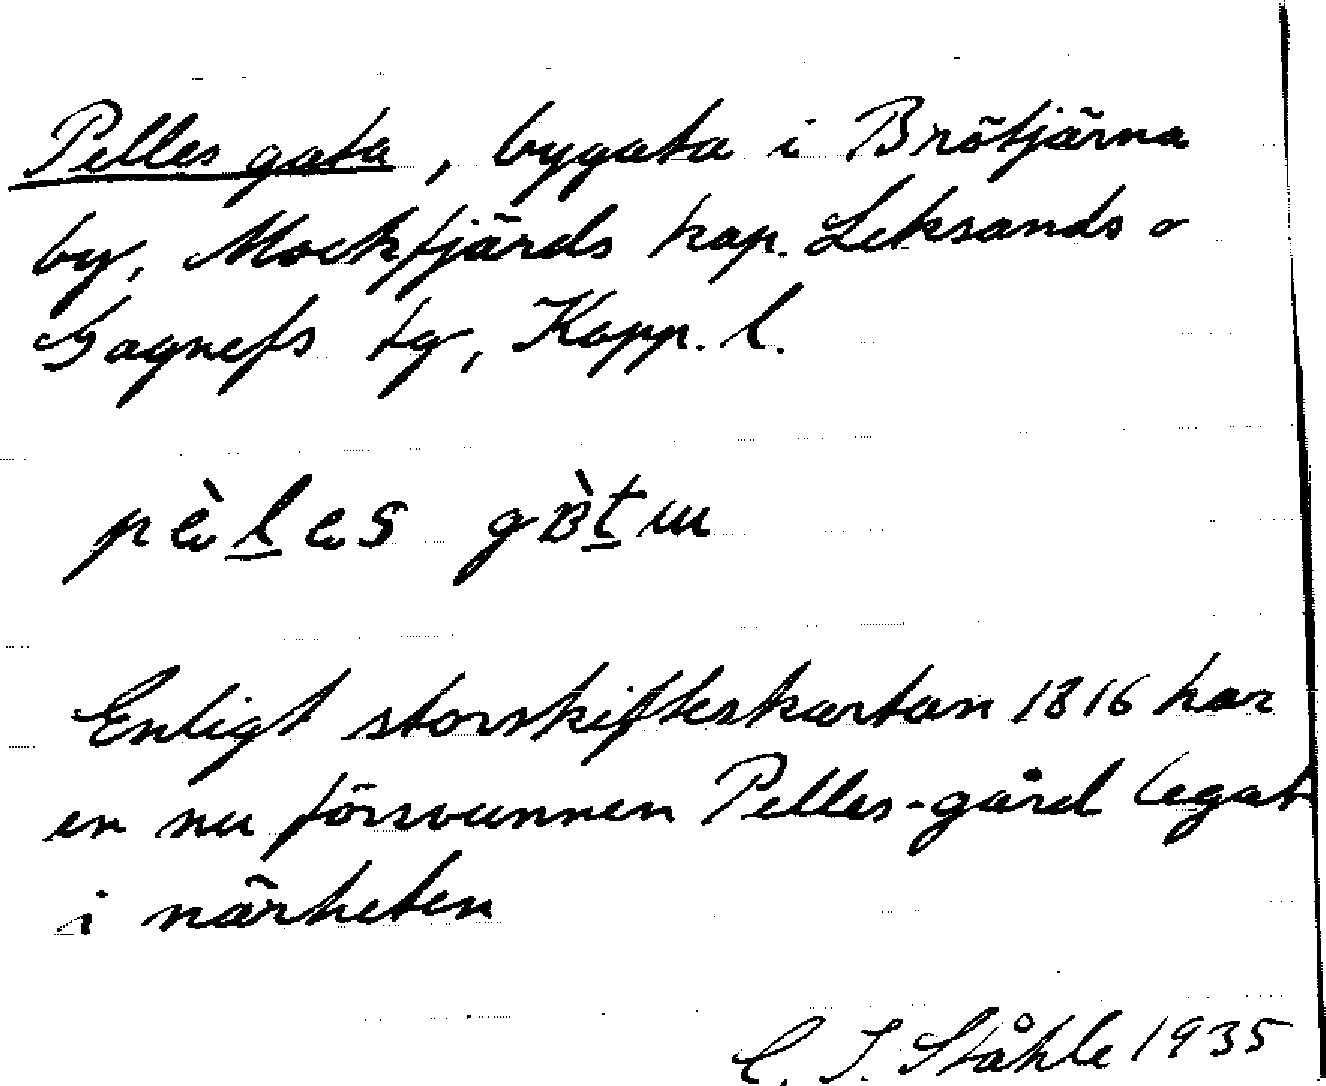 Pelles gata, bygata i Brötjärna
by, Mockfjärds kap. Leksands o
Gagnefs tg, Kopp. l.
pè̀l̲es gʙ̀t̲ɯ
Enligt storskifteskartan 1816 har
en nu försvunnen Pelles-gård legat
i närheten
C. I. Ståhle 1935